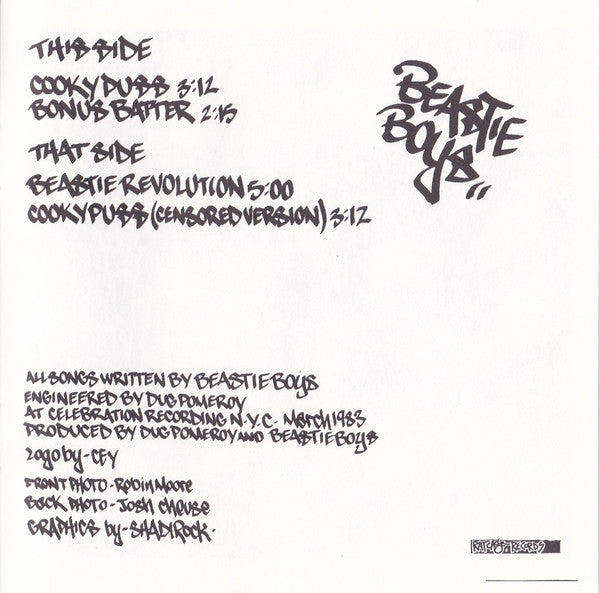 THIS SIDE
COOKY PUSS 3:12
BONUS BATTER 2:15
THAT SIDE
BEASTIE REVOLUTION 5:00
COOKY PUSS (CENSORED VERSION) 3:12
BEASTIE
BOYS
ALL SONGS WRITTEN BY BEASTIE BOYS
ENGINEERED BY DUG POMEROY
AT CELEBRATION RECORDING N.Y.C. MARCH 1983
PRODUCED BY DUG POMEROY AND BEASTIE BOYS
LOGO BY - CEY
FRONT PHOTO - ROBIN MOORE
BACK PHOTO - JOSH CHEUSE
GRAPHICS by - SHADI ROCK.
RATCAGE RECORDS